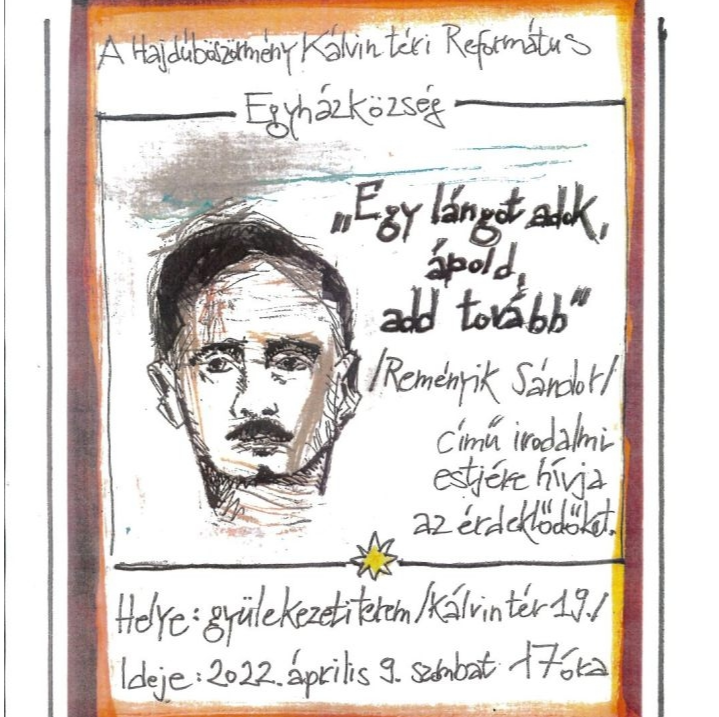 A Hajdúböszörmény Kálvin téri Református
Egyházközség
„Egy lángot adok,
ápold,
add tovább"
/Reményik Sándor/
című irodalmi
estjére hívja
az érdeklődőket.
Helye: gyülekezeti terem /Kálvin tér 19./
Ideje: 2022. április 9. szombat 17 óra